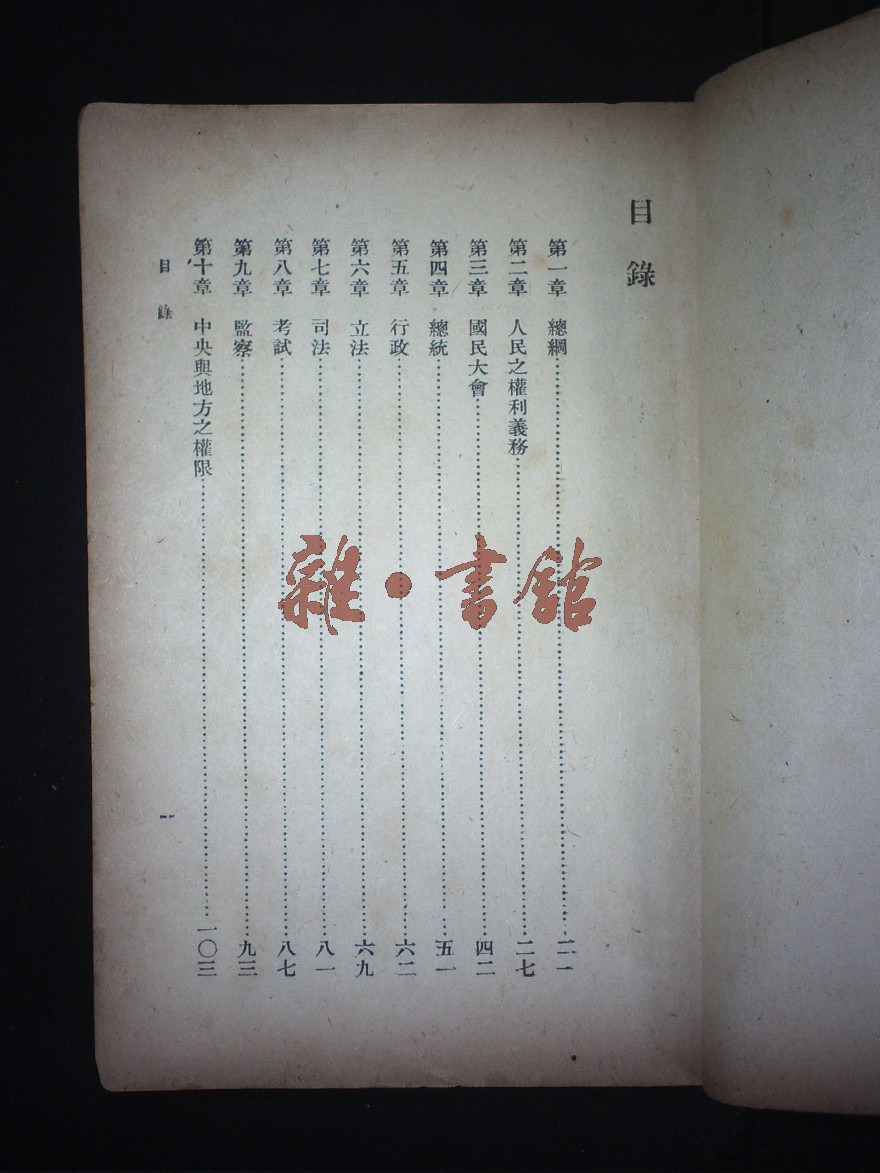 目錄
第一章 總綱……二一
第二章 人民之權利義務……二七
第三章 國民大會……四二
第四章 總統……五一
第五章 行政……六二
第六章 立法……六九
第七章 司法……八一
第八章 考試……八七
第九章 監察……九三
第十章 中央與地方之權限……一〇三
目錄
一
雜·書館